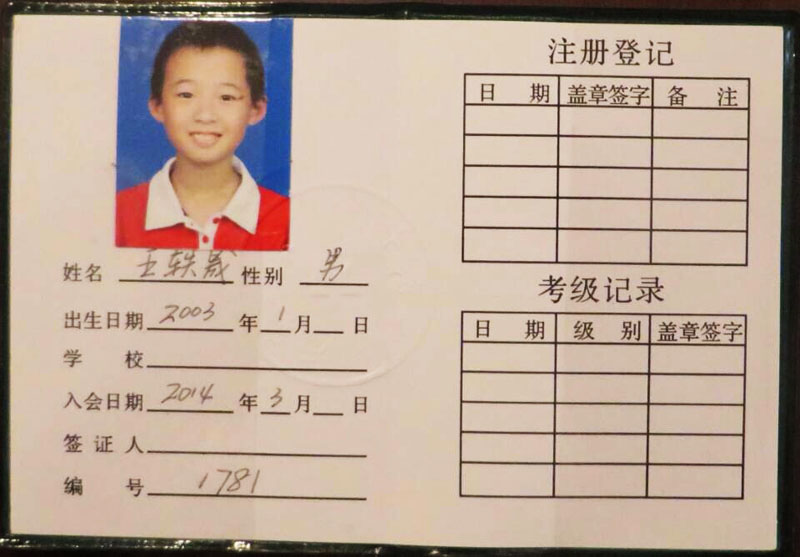 姓名 王轶晟 性别 男
出生日期 2003 年 1 月 日
学校
入会日期 2014 年 3 月 日
签证人
编号 1781
注册登记
日期 盖章签字 备注
考级记录
日期 级别 盖章签字